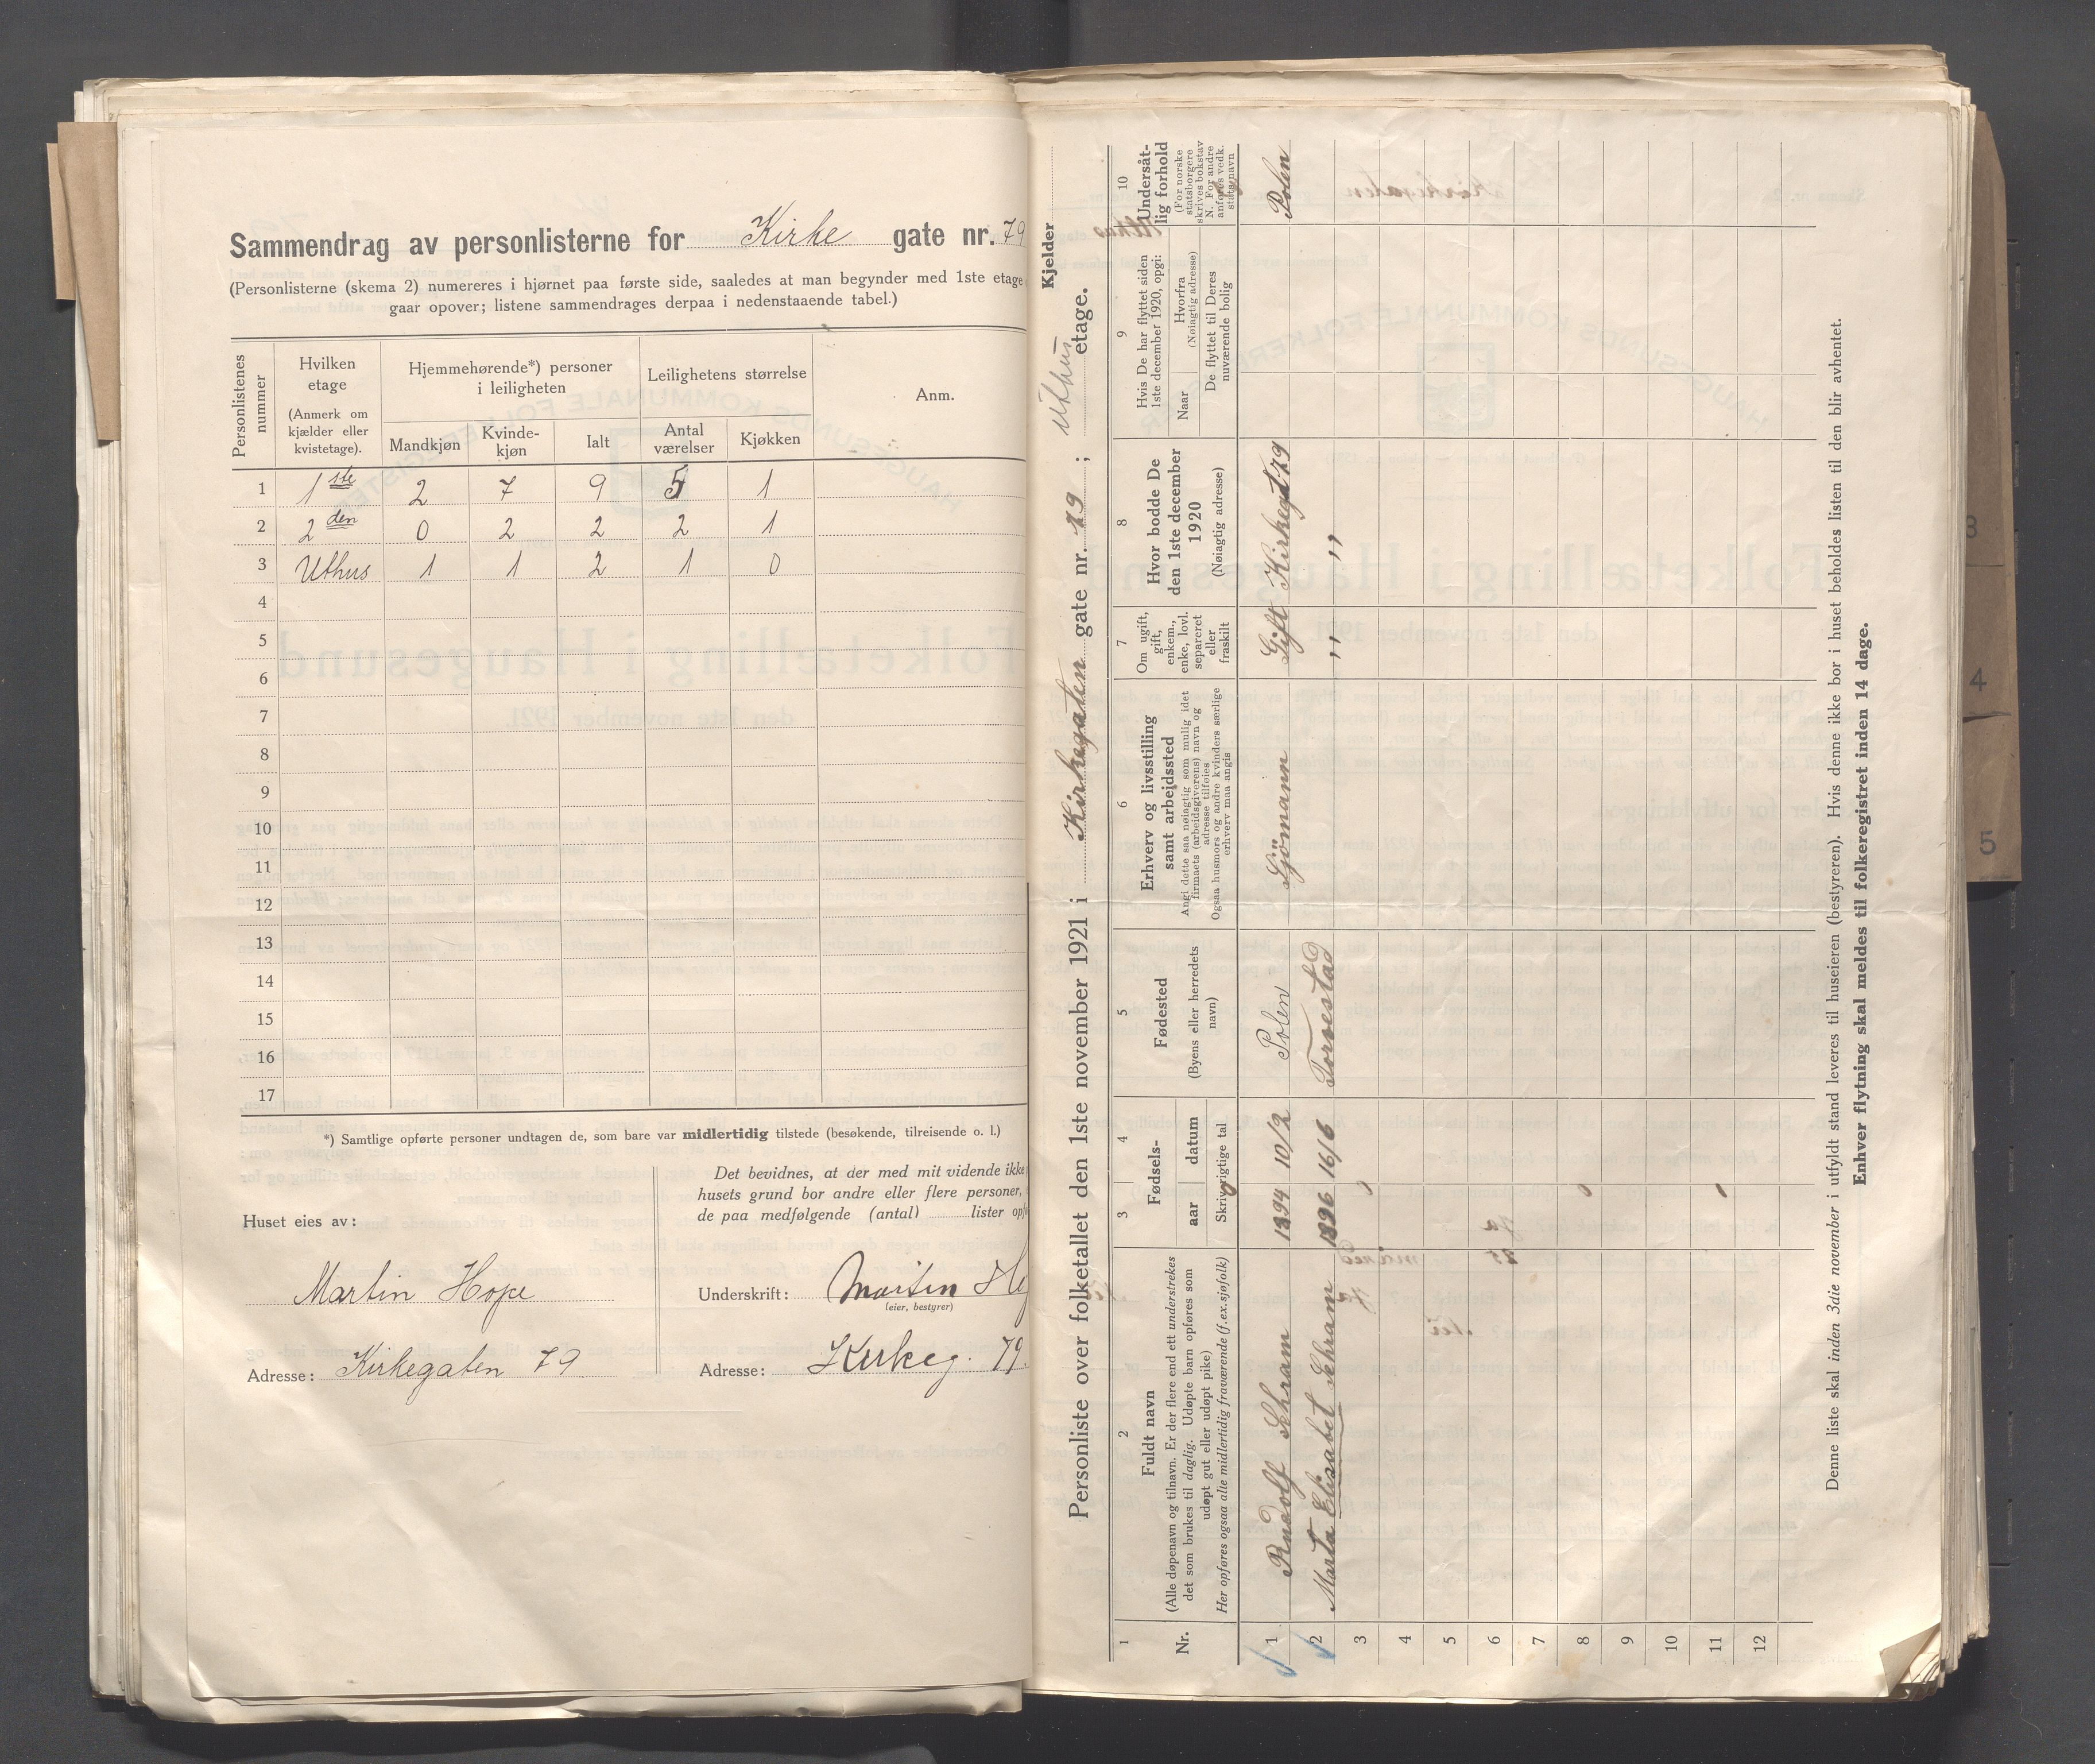 Sammendrag av personlisterne for Kirke gate nr. 79
(Personlisterne (skema 2) numereres i hjørnet paa første side, saaledes at man begynder med 1ste etage
gaar opover; listene sammendrages derpaa i nedenstaaende tabel.)
Personlistenes nummer
Hvilken etage
(Anmerk om kjælder eller kvistetage).
Hjemmehørende*) personer i leiligheten
Leilighetens størrelse
Anm.
Mandkjøn Kvinde-kjøn Ialt Antal værelser Kjøkken
1 1ste 2 7 9 5 1
2 2den 0 2 2 2 1
3 Uthus 1 1 2 1 0
4
5
6
7
8
9
10
11
12
13
14
15
16
17
*) Samtlige opførte personer undtagen de, som bare var midlertidig tilstede (besøkende, tilreisende o. l.)
Huset eies av:
Martin Hope
Adresse: Kirkegaten 79
Det bevidnes, at der med mit vidende ikke
husets grund bor andre eller flere personer,
de paa medfølgende (antal) lister
Underskrift: Martin
(eier, bestyrer)
Adresse: Kirkeg. 79.
Personliste over folketallet den 1ste november 1921 i Kirkegaten gate nr. 79; Uthus etage.
Kjelder
1
Nr.
2
Fuldt navn
(Alle døpenavn og tilnavn. Er der flere end ett understrekes
det som brukes til daglig. Udøpte barn opføres som
udøpt gut eller udøpt pike)
Her opføres ogsaa alle midlertidig fraværende (f.ex.sjøfolk)
3 4
Fødsels-
aar datum
Skriv rigtige tal
5
Fødested
(Byens eller herredets navn)
6
Erhverv og livsstilling
samt arbejdssted
Angi dette saa nøiagtig som mulig idet
firmaets (arbeidsgiverens) navn og
adresse tilføies
Ogsaa husmors og andre kvinders særlige
erhverv maa angis
7
Om ugift, gift, enkem., enke, lovl. separeret eller fraskilt
8
Hvor bodde De
den 1ste december
1920
(Nøiagtig adresse)
9
Hvis De har flyttet siden
1ste december 1920, opgi:
Naar
Hvorfra
(Nøiagtig adresse)
De flyttet til Deres
nuværende bolig
10
Undersåt-
lig forhold
(For norske
statsborgere
skrives bokstav
N. For andre
anføres vedk.
statsnavn
1 Rudolf Schram 1894 10/2 Polen Sjömann Gift Kirkegt 79 Polen
2 Marta Elisabet Schram 1896 16/6 Torvestad ,, ,,
3
4
5
6
7
8
9
10
11
12
Denne liste skal inden 3die november i utfyldt stand leveres til huseieren (bestyreren). Hvis denne ikke bor i huset beholdes listen til den blir avhentet.
Enhver flytning skal meldes til folkeregistret inden 14 dage.
3
4
5